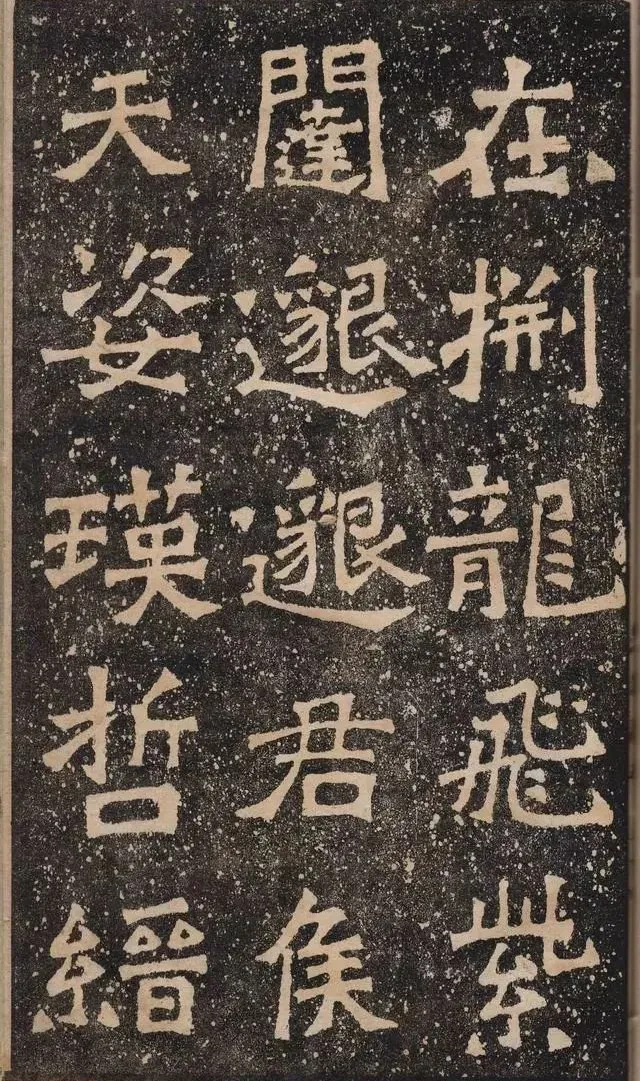 在龍飛紫
闥邈邈君侯
天姿瑛哲縉